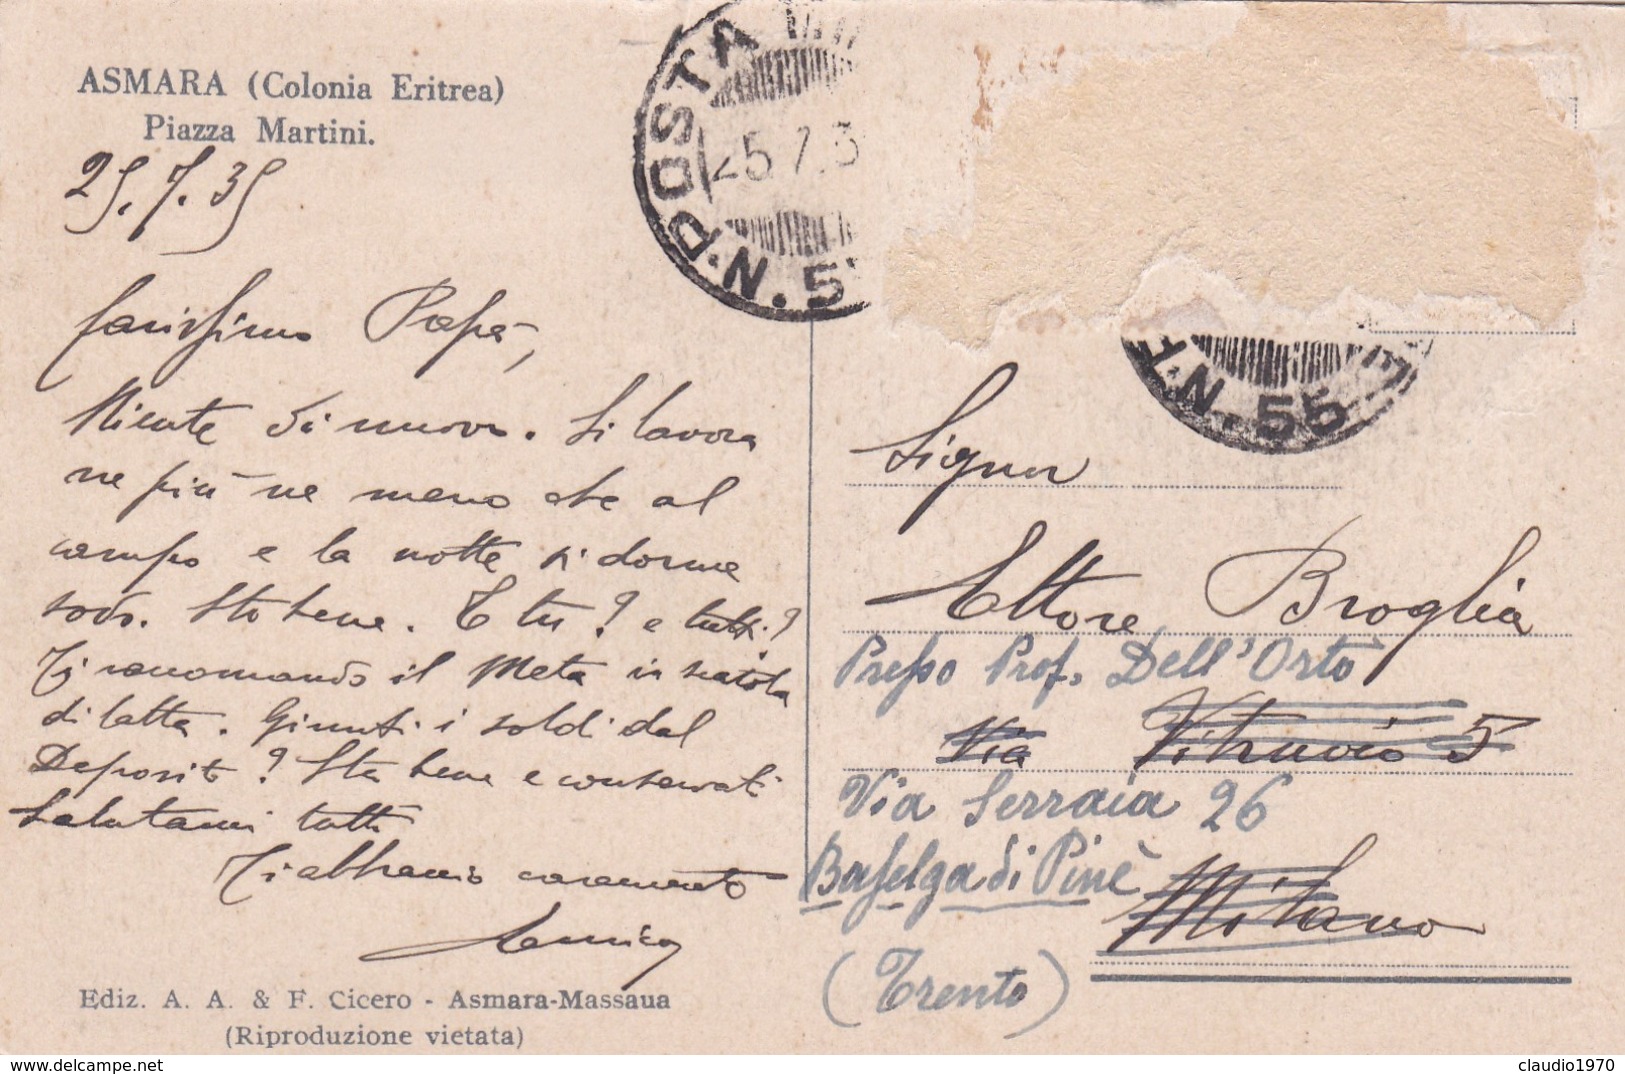 ASMARA (Colonia Eritrea)
Piazza Martini.
25.7.35
Carissimo Papà,
Niente di nuovo. Si lavora
ne più ne meno che al
campo e la notte si dorme
sodo. Sto bene. E tu? e tutti?
Ti raccomando il Meta in scatola
di latta. Giunti i soldi dal
Deposito? Sta bene e conservati
Salutami tutti
Ti abbraccio caramente
Ediz. A. A. & F. Cicero - Asmara-Massaua
(Riproduzione vietata)
POSTA
25.7.3
N. 5
N. 55
Signor
Ettore Broglia
Presso Prof. Dell'Orto
Via Vitruvio 5
Via Serraia 26
Baselga di Pinè
Milano
(Trento)
https://www.delcampe.net
claudio1970